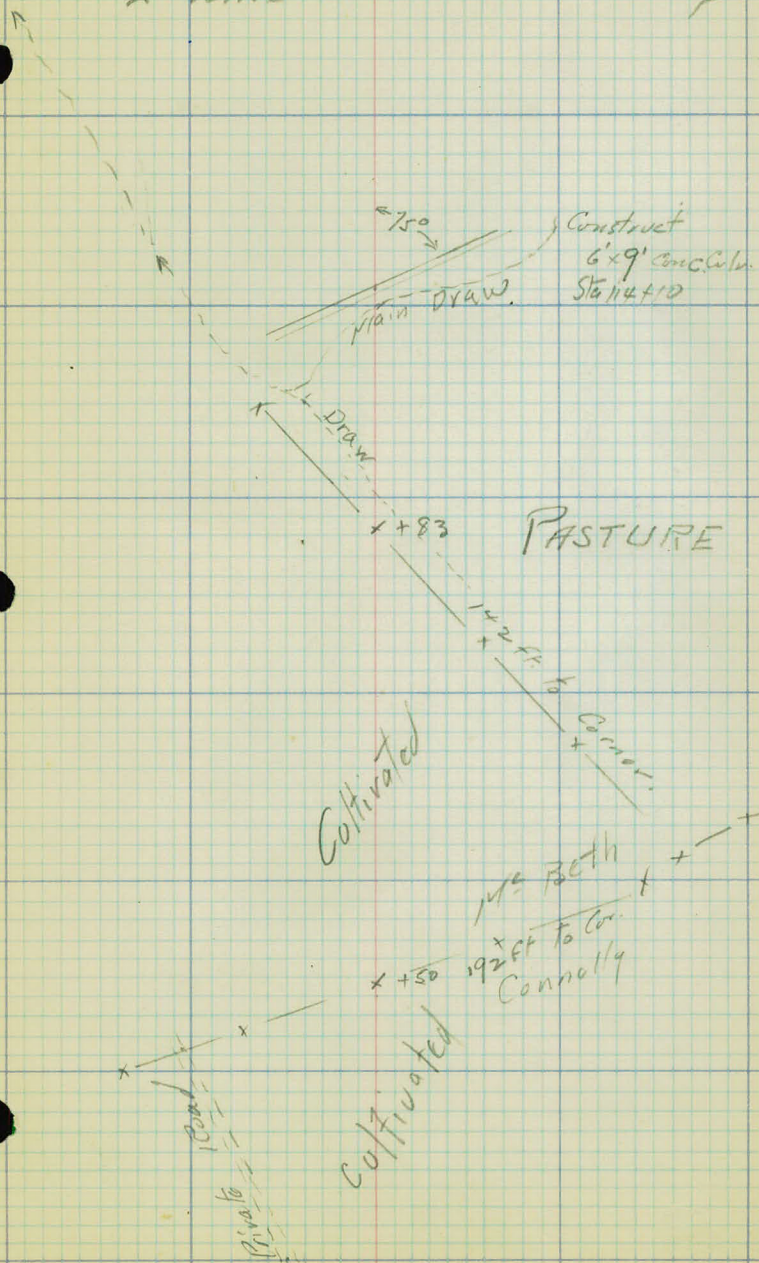 75°
Construct
6'x9' Conc. Culv.
Sta 114+10
Main Draw
Draw
+83
PASTURE
142 ft. to Corner.
Cultivated
Mc Beth
+50 192 ft to Cor.
Connolly
Cultivated
Private Road